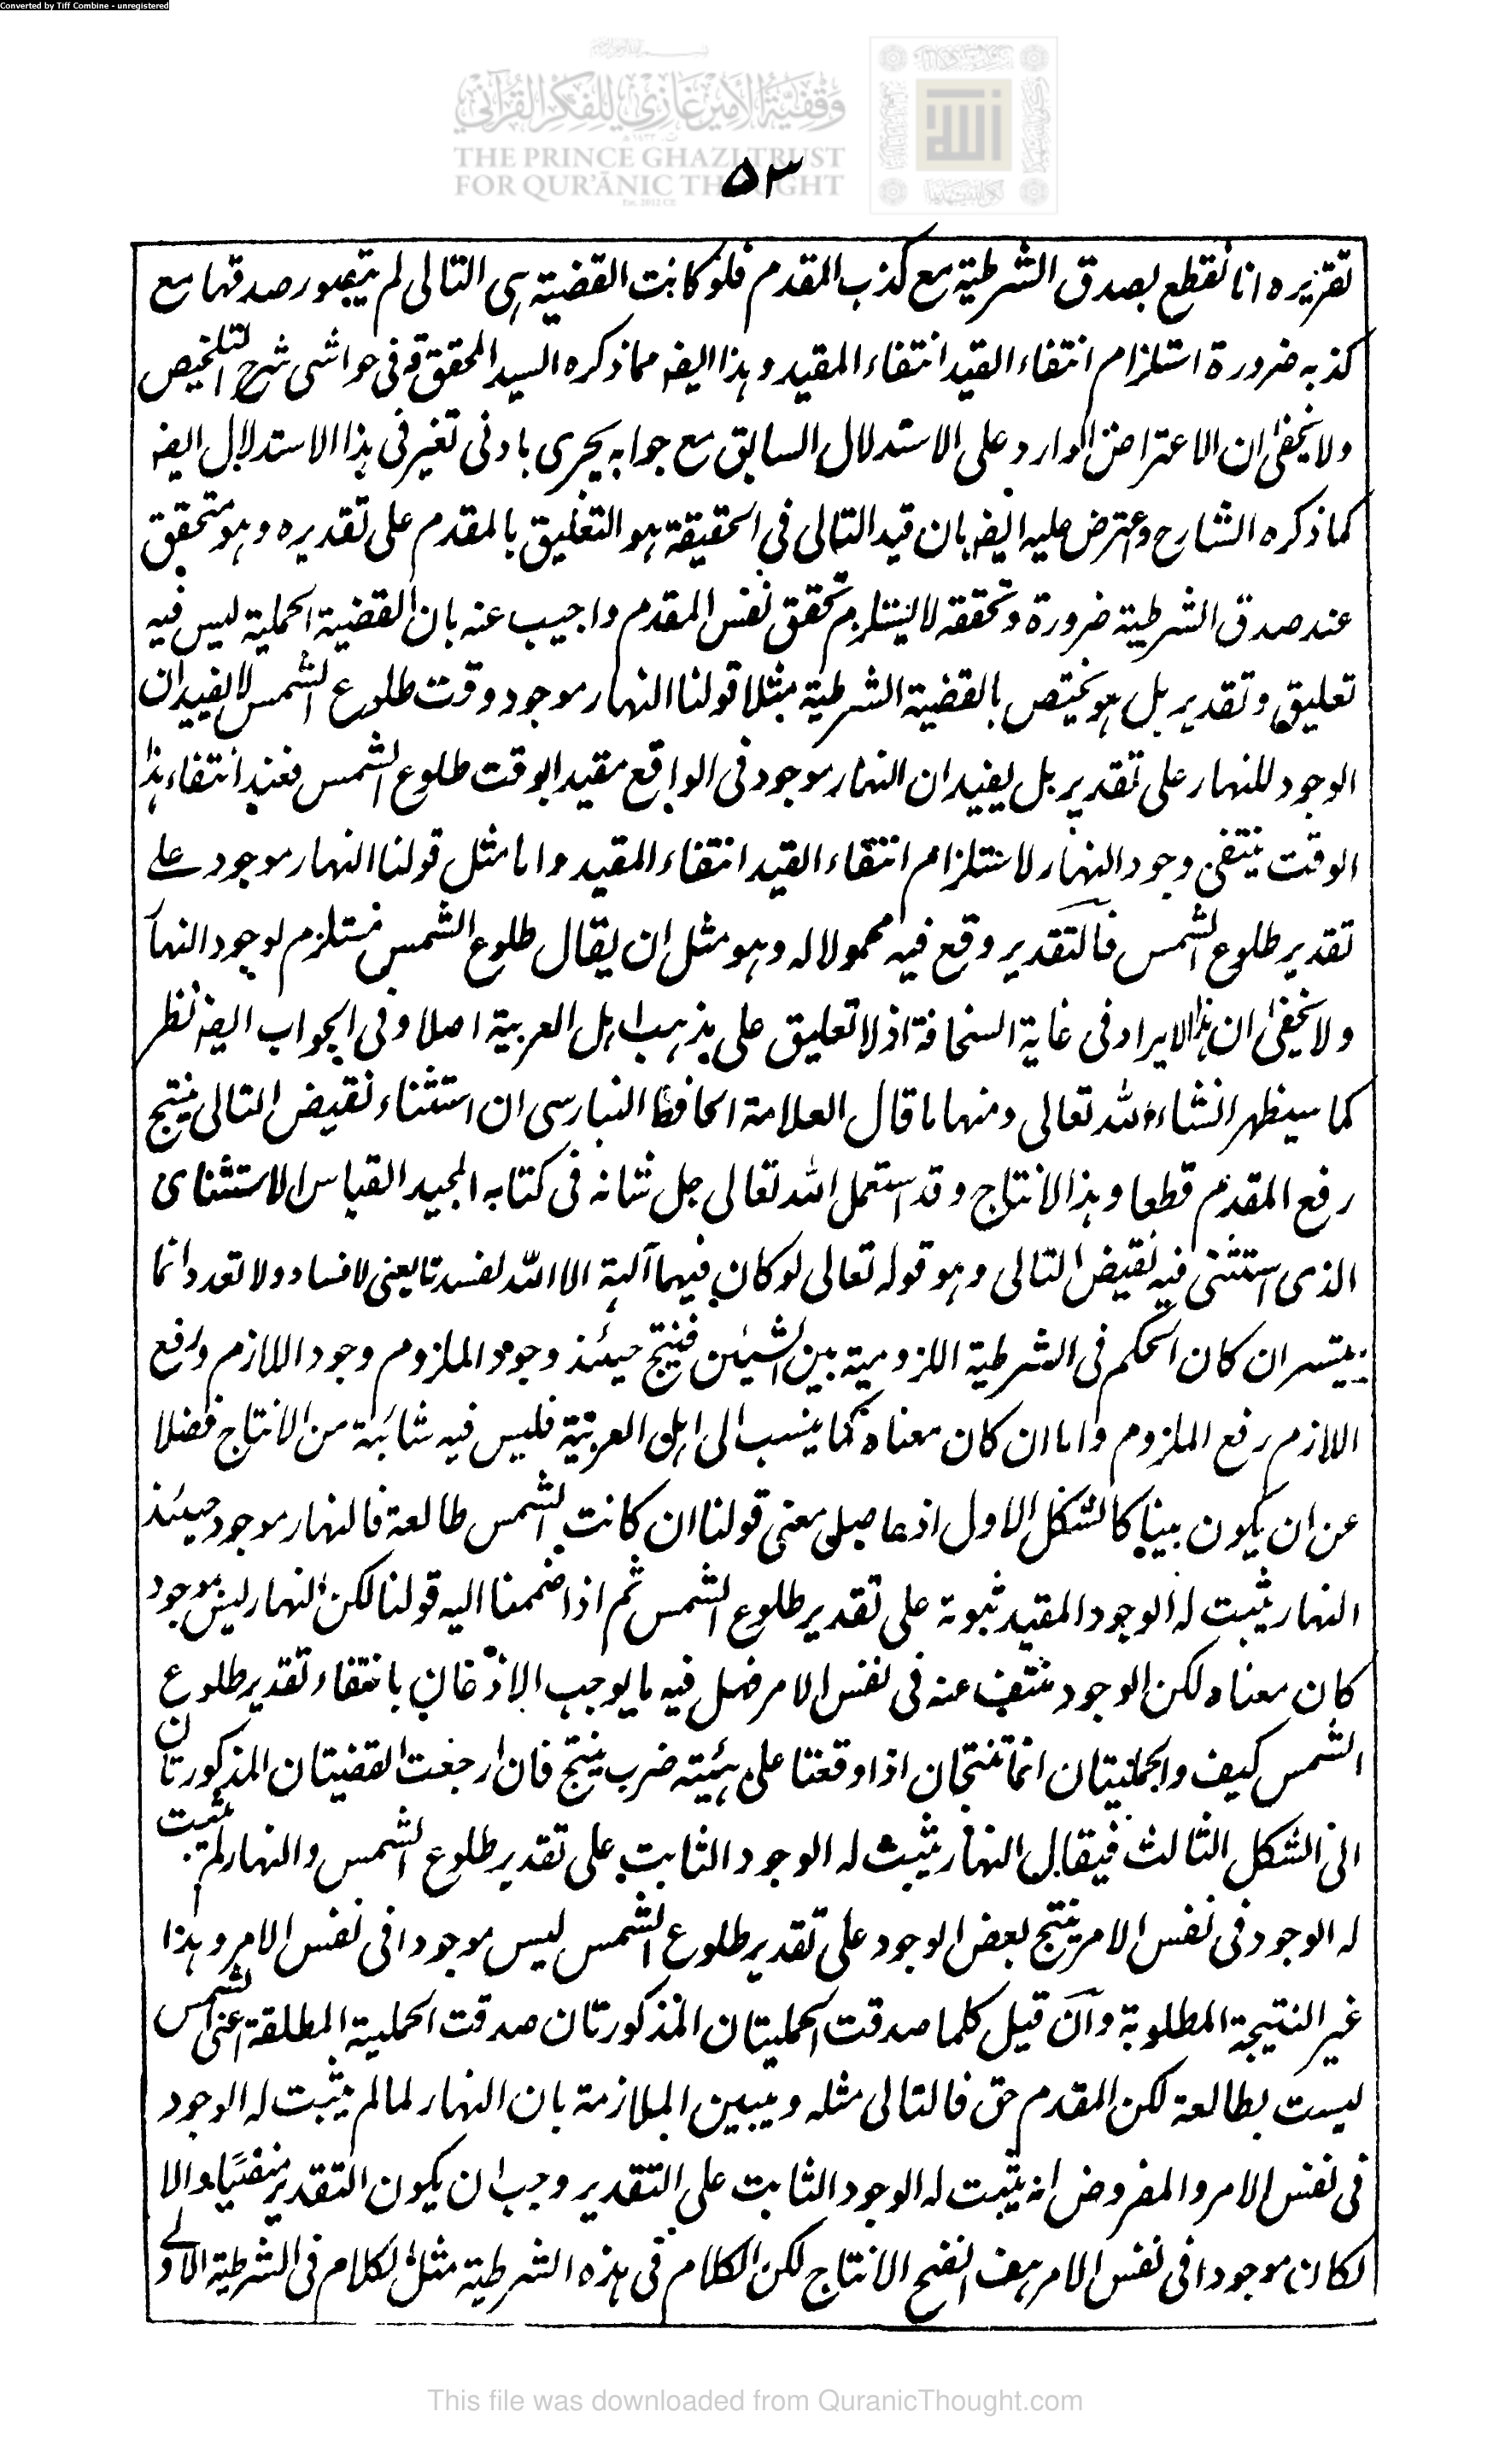 Converted by Tiff Combine - unregistered
وقفية الأمير غازي للفكر القرآني
THE PRINCE GHAZI TRUST
FOR QUR'ĀNIC THOUGHT
۵۳
تقريره انا نقطع بصدق الشرطية مع كذب المقدم فلو كانت القضية هى التالى لم يتصور صدقها مع
كذبه ضرورة استلزام انتفاء القيد انتفاء المقيد وهذا ايضا مما ذكره السيد المحقق قه فى حواشى شرح التلخيص
ولا يخفى ان الاعتراض الوارد على الاستدلال السابق مع جوابه يجرى بادنى تغير فى هذا الاستدلال ايضا
كما ذكره الشارح واعترض عليه ايضا بان قيد التالى فى الحقيقة هو التعليق بالمقدم على تقديره وهو متحقق
عند صدق الشرطية ضرورة وتحققه لا يستلزم تحقق نفس المقدم واجيب عنه بان القضية الحملية ليس فيه
تعليق وتقدير بل هو يختص بالقضية الشرطية مثلا قولنا النهار موجود وقت طلوع الشمس لا يفيد ان
الوجود للنهار على تقدير بل يفيد ان النهار موجود فى الواقع مقيدا بوقت طلوع الشمس فعند انتفاء هذا
الوقت ينتفى وجود النهار لاستلزام انتفاء القيد انتفاء المقيد واما مثل قولنا النهار موجود على
تقدير طلوع الشمس فالتقدير وقع فيه محمولا له وهو مثل ان يقال طلوع الشمس مستلزم لوجود النهار
ولا يخفى ان هذا الايراد فى غاية السخافة اذ لا تعليق على مذهب اهل العربية اصلا وفى الجواب ايضا نظر
كما سيظهر انشاء الله تعالى ومنها ما قال العلامة الحافظ البنارسى ان استثناء نقيض التالى ينتج
رفع المقدم قطعا وهذا الانتاج وقد استعمل الله تعالى جل شانه فى كتابه المجيد القياس الاستثنائى
الذى استثنى فيه نقيض التالى وهو قوله تعالى لو كان فيهما آلهة الا الله لفسدتا يعنى لا فساد ولا تعدد انما
يتيسر ان كان الحكم فى الشرطية اللزومية بين الشيئين فينتج حينئذ وجود الملزوم وجود اللازم ورفع
اللازم رفع الملزوم واما ان كان معناه كما ينسب الى اهل العربية فليس فيه شائبة من الانتاج فضلا
عن ان يكون بينا كالشكل الاول اذ حاصل معنى قولنا ان كانت الشمس طالعة فالنهار موجود حينئذ
النهار يثبت له الوجود المقيد ثبوته على تقدير طلوع الشمس ثم اذا ضممنا اليه قولنا لكن النهار ليس بموجود
كان معناه لكن الوجود منتف عنه فى نفس الامر فهل فيه ما يوجب الاذعان بانتفاء تقدير طلوع
الشمس كيف والحمليتان انما تنتجان اذا وقعتا على هيئة ضرب ينتج فان ارجعت القضيتان المذكورتان
الى الشكل الثالث فيقال النهار يثبت له الوجود الثابت على تقدير طلوع الشمس والنهار لم يثبت
له الوجود فى نفس الامر ينتج بعض الوجود على تقدير طلوع الشمس ليس موجودا فى نفس الامر وهذا
غير النتيجة المطلوبة وان قيل كلما صدقت الحمليتان المذكورتان صدقت الحملية المطلقة اعنى الشمس
ليست بطالعة لكن المقدم حق فالتالى مثله ويبين الملازمة بان النهار لما لم يثبت له الوجود
فى نفس الامر والمفروض انه يثبت له الوجود الثابت على التقدير وجب ان يكون التقدير منفيا والا
لكان موجودا فى نفس الامر هف اتضح الانتاج لكن الكلام فى هذه الشرطية مثل الكلام فى الشرطية الاولى
This file was downloaded from QuranicThought.com